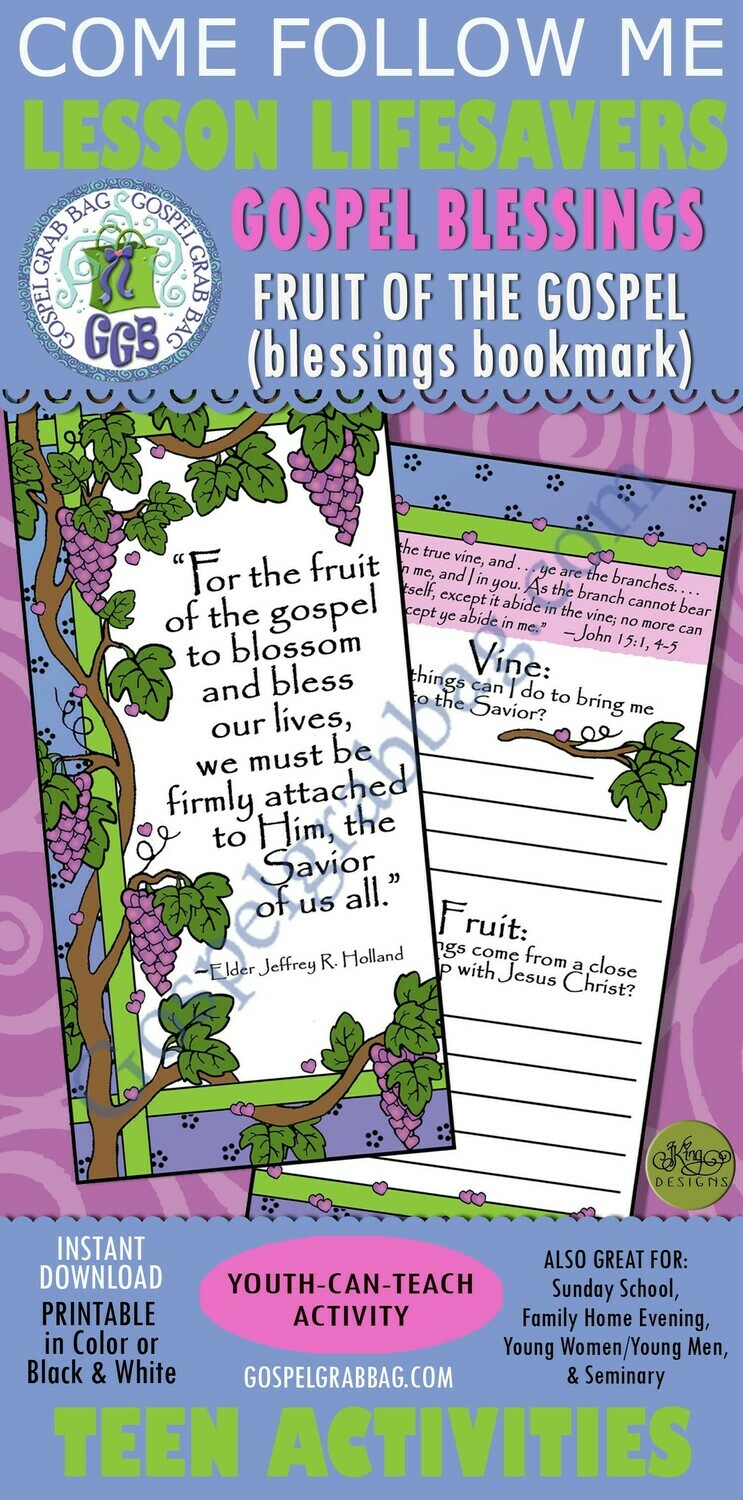 COME FOLLOW ME
LESSON LIFESAVERS
GOSPEL GRAB BAG GOSPEL GRAB BAG
GGB
GOSPEL BLESSINGS
FRUIT OF THE GOSPEL
(blessings bookmark)
"For the fruit
of the gospel
to blossom
and bless
our lives,
we must be
firmly attached
to Him, the
Savior
of us all."
~Elder Jeffrey R. Holland
the true vine, and . . . ye are the branches. . . .
in me, and I in you. As the branch cannot bear
itself, except it abide in the vine; no more can
cept ye abide in me." —John 15:1, 4-5
Vine:
things can I do to bring me
to the Savior?
Fruit:
ngs come from a close
p with Jesus Christ?
Gospelgrabbag.com
JKing
DESIGNS
INSTANT
DOWNLOAD
PRINTABLE
in Color or
Black & White
YOUTH-CAN-TEACH
ACTIVITY
GOSPELGRABBAG.COM
ALSO GREAT FOR:
Sunday School,
Family Home Evening,
Young Women/Young Men,
& Seminary
TEEN ACTIVITIES